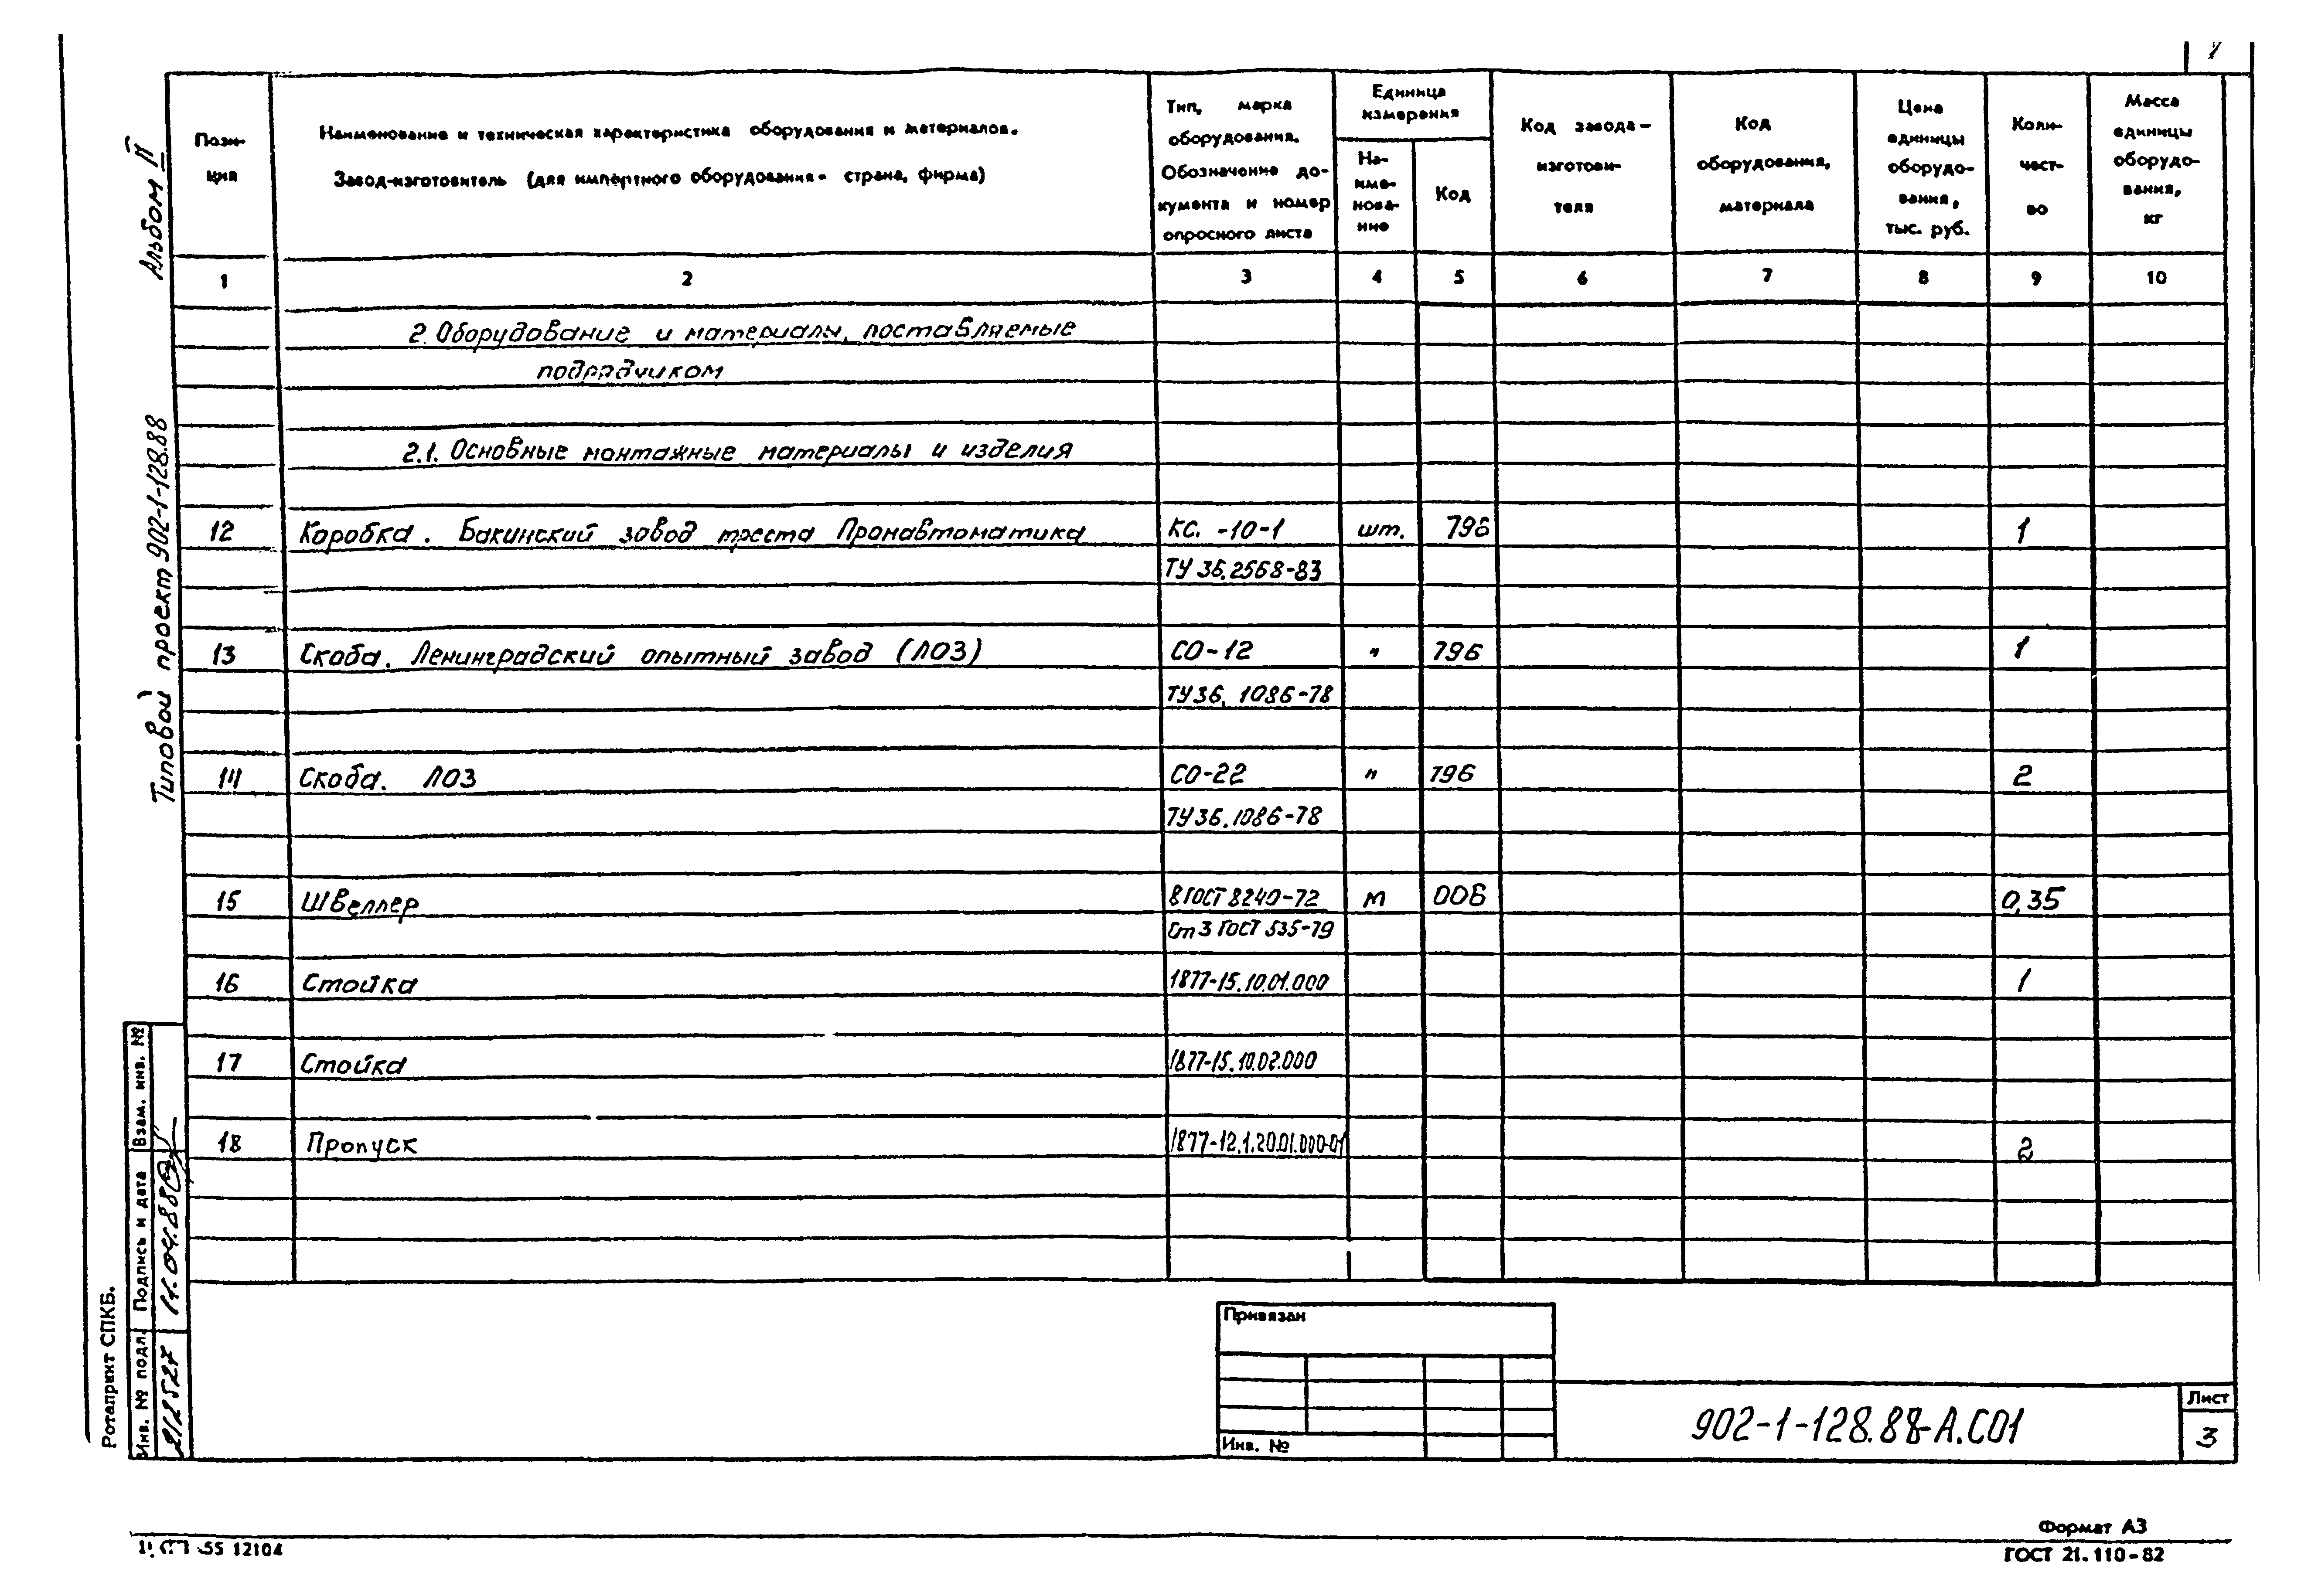 Альбом II
Типовой проект 902-1-128.88
Пози-
ция
Наименование и техническая характеристика оборудования и материалов.
Завод-изготовитель (для импортного оборудования- страна, фирма)
Тип, марка
оборудования.
Обозначение до-
кумента и номер
опросного листа
Единица
измерения
На-
име-
нова-
ние
Код
Код завода-
изготови-
теля
Код
оборудования,
материала
Цена
единицы
оборудо-
вания,
тыс. руб.
Коли-
чест-
во
Масса
единицы
оборудо-
вания,
кг
1 2 3 4 5 6 7 8 9 10
2. Оборудование и материалы, поставляемые
подрядчиком
2.1. Основные монтажные материалы и изделия
12 Коробка. Бакинский завод треста Промавтоматика КС. -10-1 шт. 796 1
ТУ 36.2568-83
13 Скоба. Ленинградский опытный завод (ЛОЗ) СО-12 " 796 1
ТУ36. 1086-78
14 Скоба. ЛОЗ СО-22 " 796 2
ТУ36.1086-78
15 Швеллер 8 ГОСТ 8240-72 м 006 0,35
Ст 3 ГОСТ 535-79
16 Стойка 1877-15.10.01.000 1
17 Стойка 1877-15.10.02.000
18 Пропуск 1877-12.1.20.01.000-01 2
Ротапринт СПКБ.
Взам. инв. №
Подпись и дата
11.04.88
Инв. № подл.
212527
Привязан
Инв. №
902-1-128.88-А.СО1
Лист
3
Формат А3
ГОСТ 21.110-82
12104